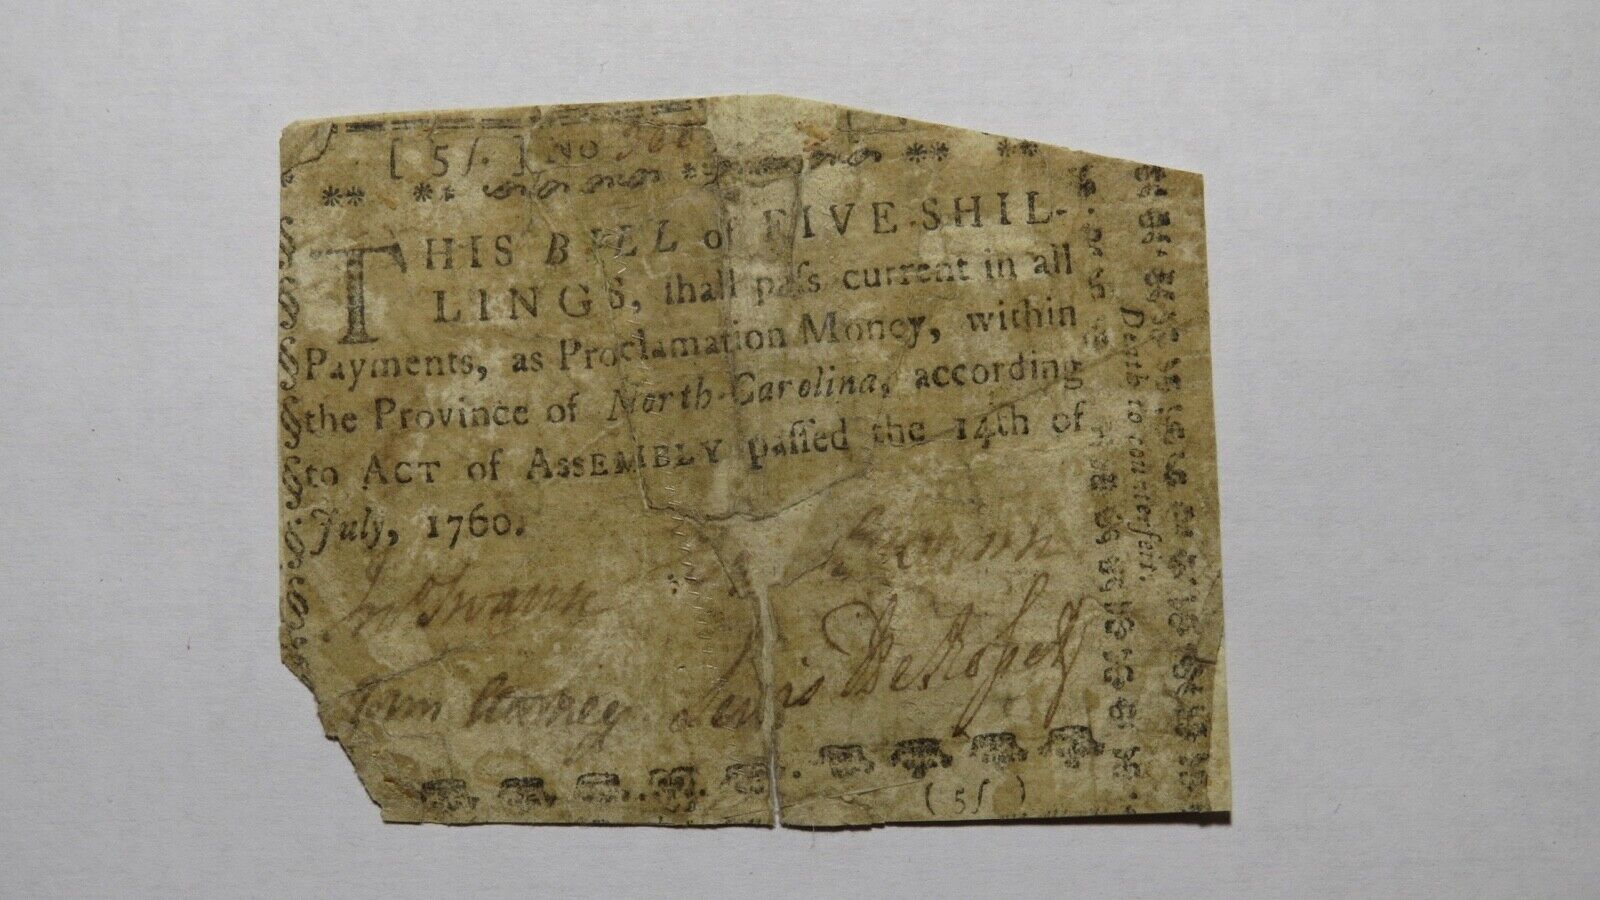 [ 5ſ. ] No
THIS BILL of FIVE SHIL-
LINGS, ſhall paſs current in all
Payments, as Proclamation Money, within
the Province of North-Carolina, according
to ACT of ASSEMBLY paſſed the 14th of
July, 1760.
Jno Swann
Lewis DeRosset
( 5ſ )
Death to counterfeit.